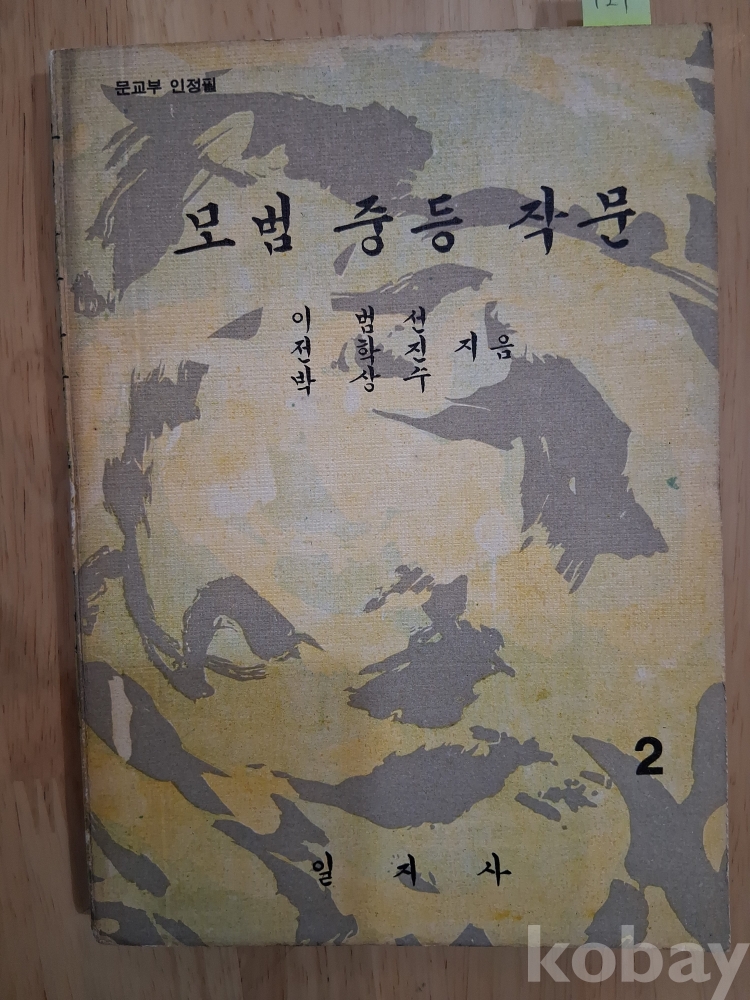 문교부 인정필
모범 중등 작문
이 범 선
전 학 진 지음
박 상 수
2
일 지 사
kobay